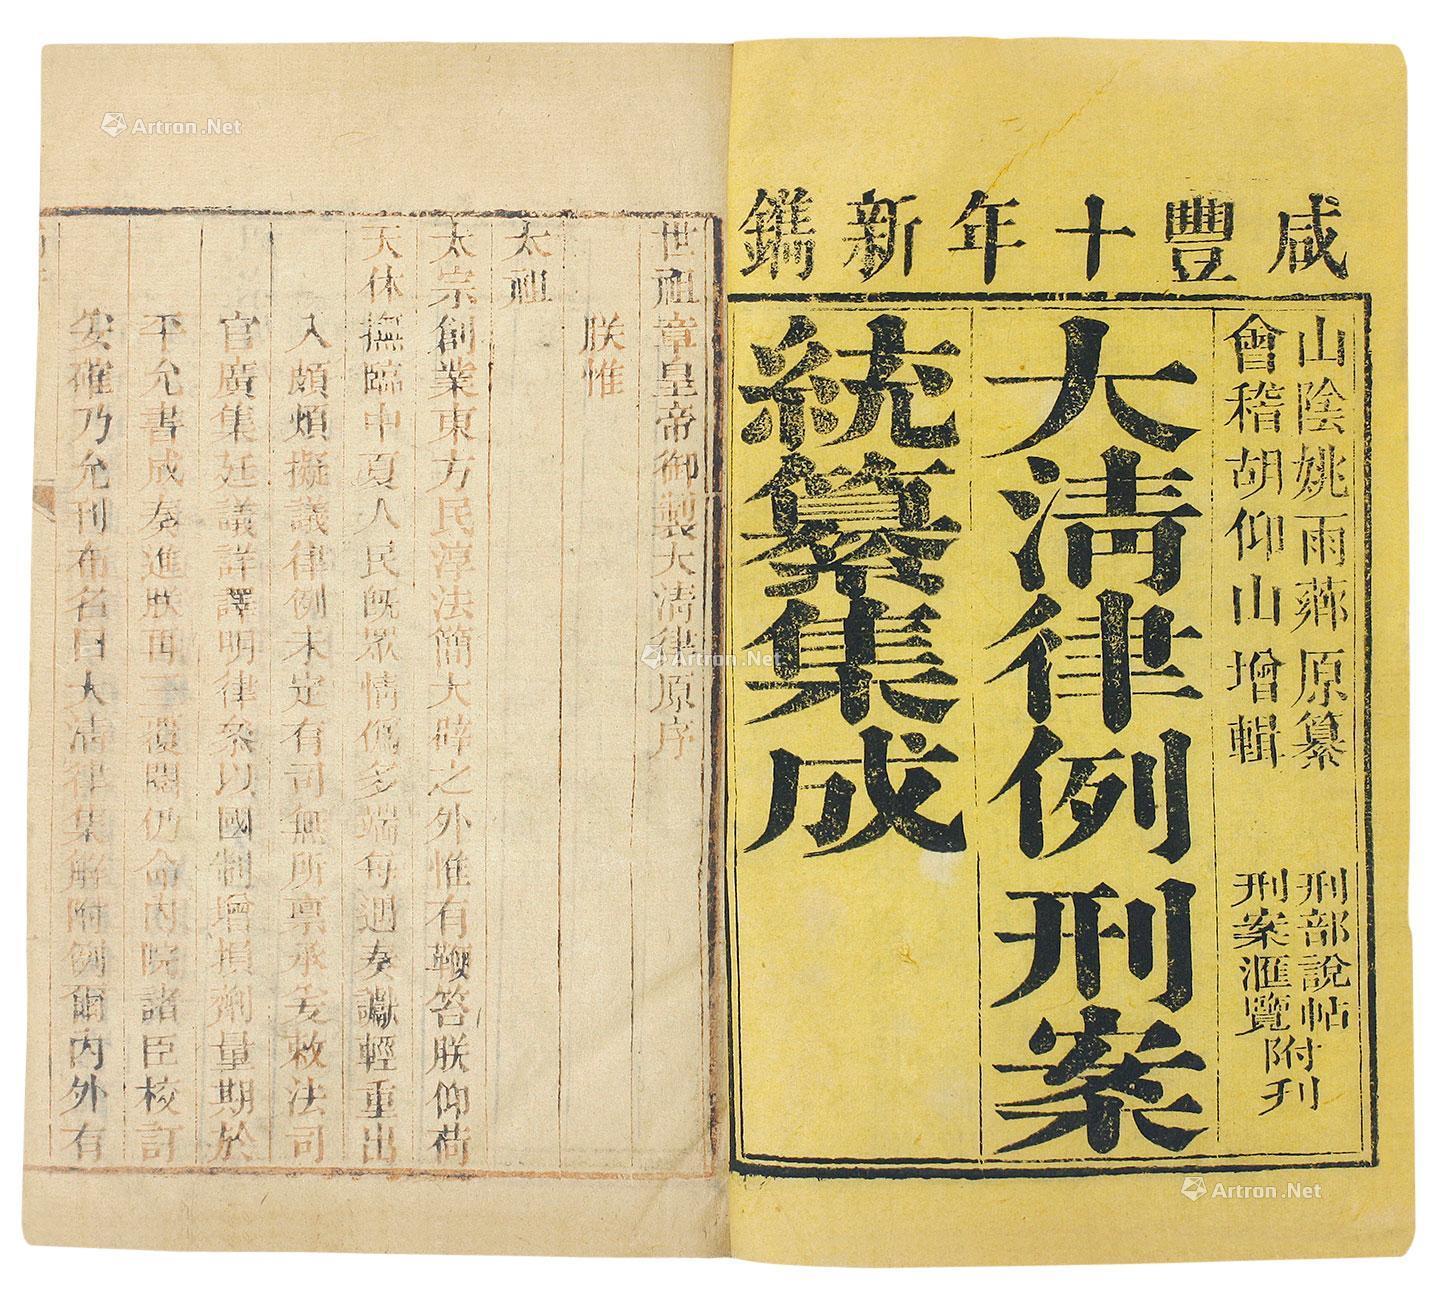 咸豐十年新鐫
山陰姚雨薌原纂
會稽胡仰山增輯
刑部說帖
刑案滙覽附刊
大淸律例刑案
統纂集成
世祖章皇帝御製大淸律原序
朕惟
太祖
太宗創業東方民淳法簡大辟之外惟有鞭笞朕仰荷
天休撫臨中夏人民旣眾情僞多端每遇奏讞輕重出
入頗煩擬議律例未定有司無所稟承爰敕法司
官廣集廷議詳譯明律叅以國制增損劑量期於
平允書成奏進朕再三覆閱仍命內院諸臣校訂
妥確乃允刊布名曰大淸律集解附例爾內外有
Artron.Net
Artron.Net
Artron.Net